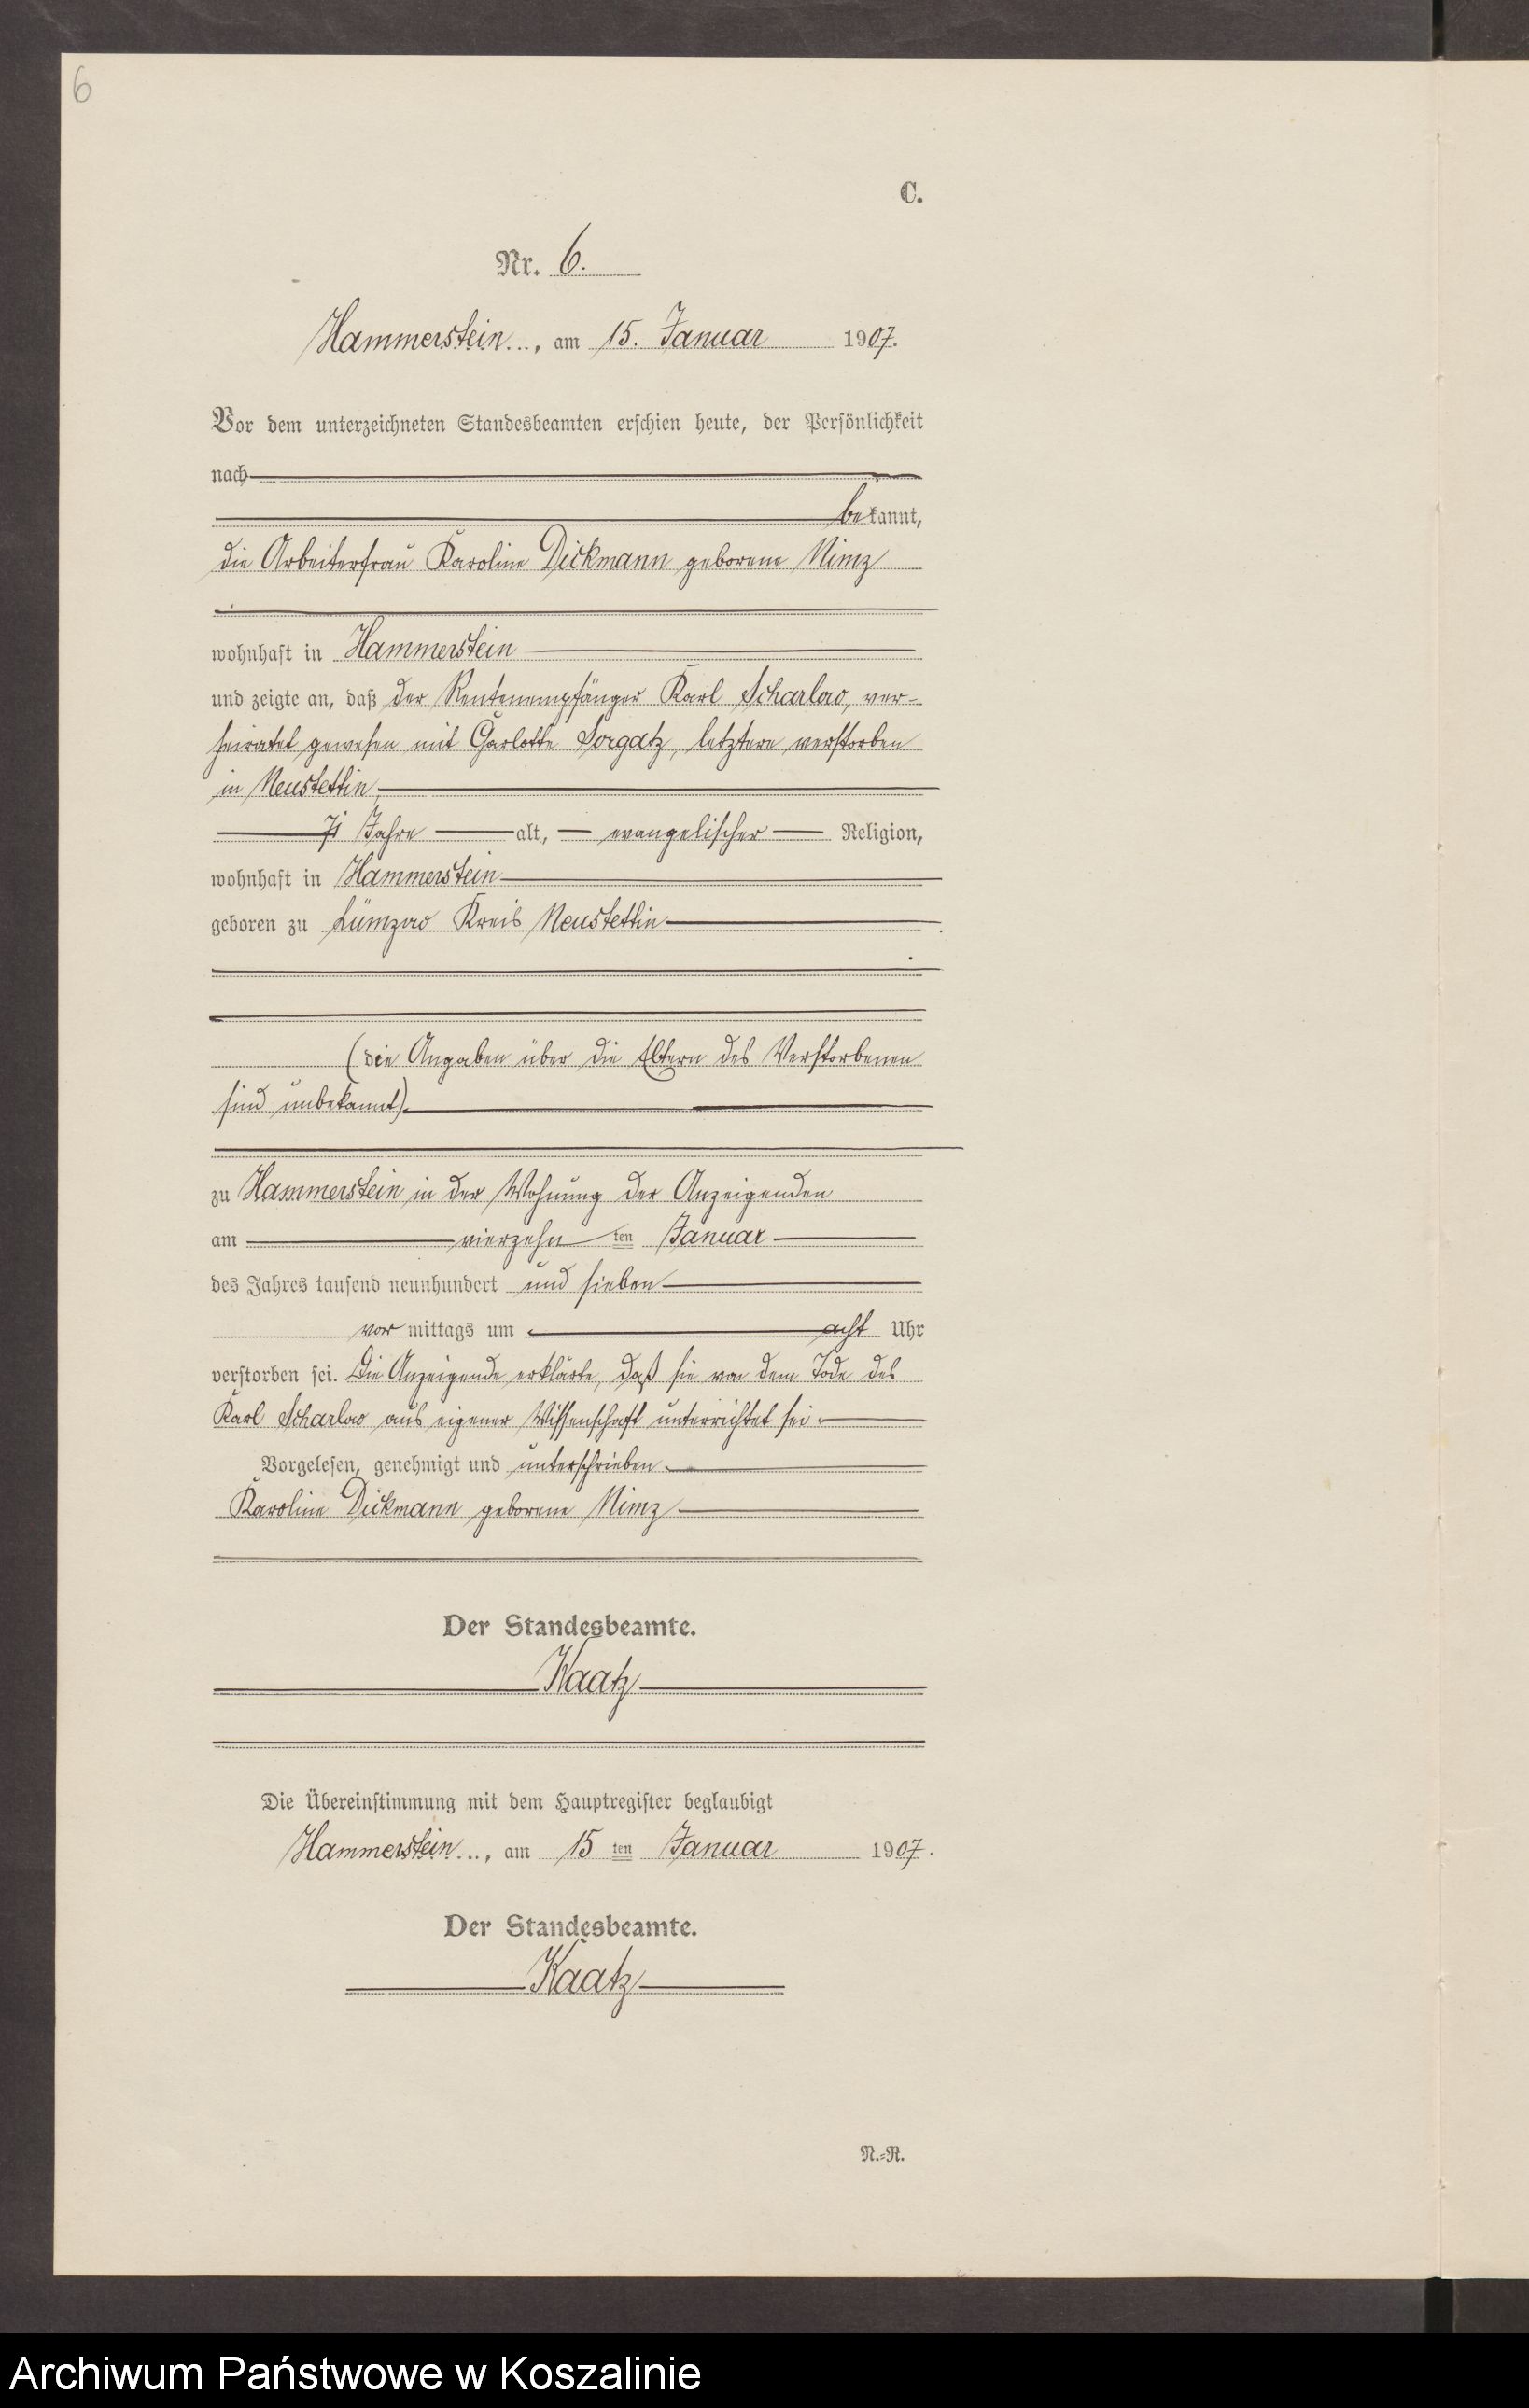 6
C.
Nr. 6.
Hammerstein..., am 15. Januar 1907.
Vor dem unterzeichneten Standesbeamten erschien heute, der Persönlichkeit
nach
bekannt,
die Arbeiterfrau Karoline Dickmann geborene Nimz
wohnhaft in Hammerstein
und zeigte an, daß der Rentenempfänger Karl Scharlow, ver-
heiratet gewesen mit Charlotte Sorgatz, letztere verstorben
in Neustettin,
71 Jahre alt, evangelischer Religion,
wohnhaft in Hammerstein
geboren zu Lümzow Kreis Neustettin
(die Angaben über die Eltern des Verstorbenen
sind unbekannt)
zu Hammerstein in der Wohnung der Anzeigenden
am vierzehn ten Januar
des Jahres tausend neunhundert und sieben
vor mittags um acht Uhr
verstorben sei. Die Anzeigende erklärte, daß sie von dem Tode des
Karl Scharlow aus eigener Wissenschaft unterrichtet sei.
Vorgelesen, genehmigt und unterschrieben.
Karoline Dickmann geborene Nimz
Der Standesbeamte.
Kaatz
Die Übereinstimmung mit dem Hauptregister beglaubigt
Hammerstein..., am 15 ten Januar 1907.
Der Standesbeamte.
Kaatz
N.=R.
Archiwum Państwowe w Koszalinie